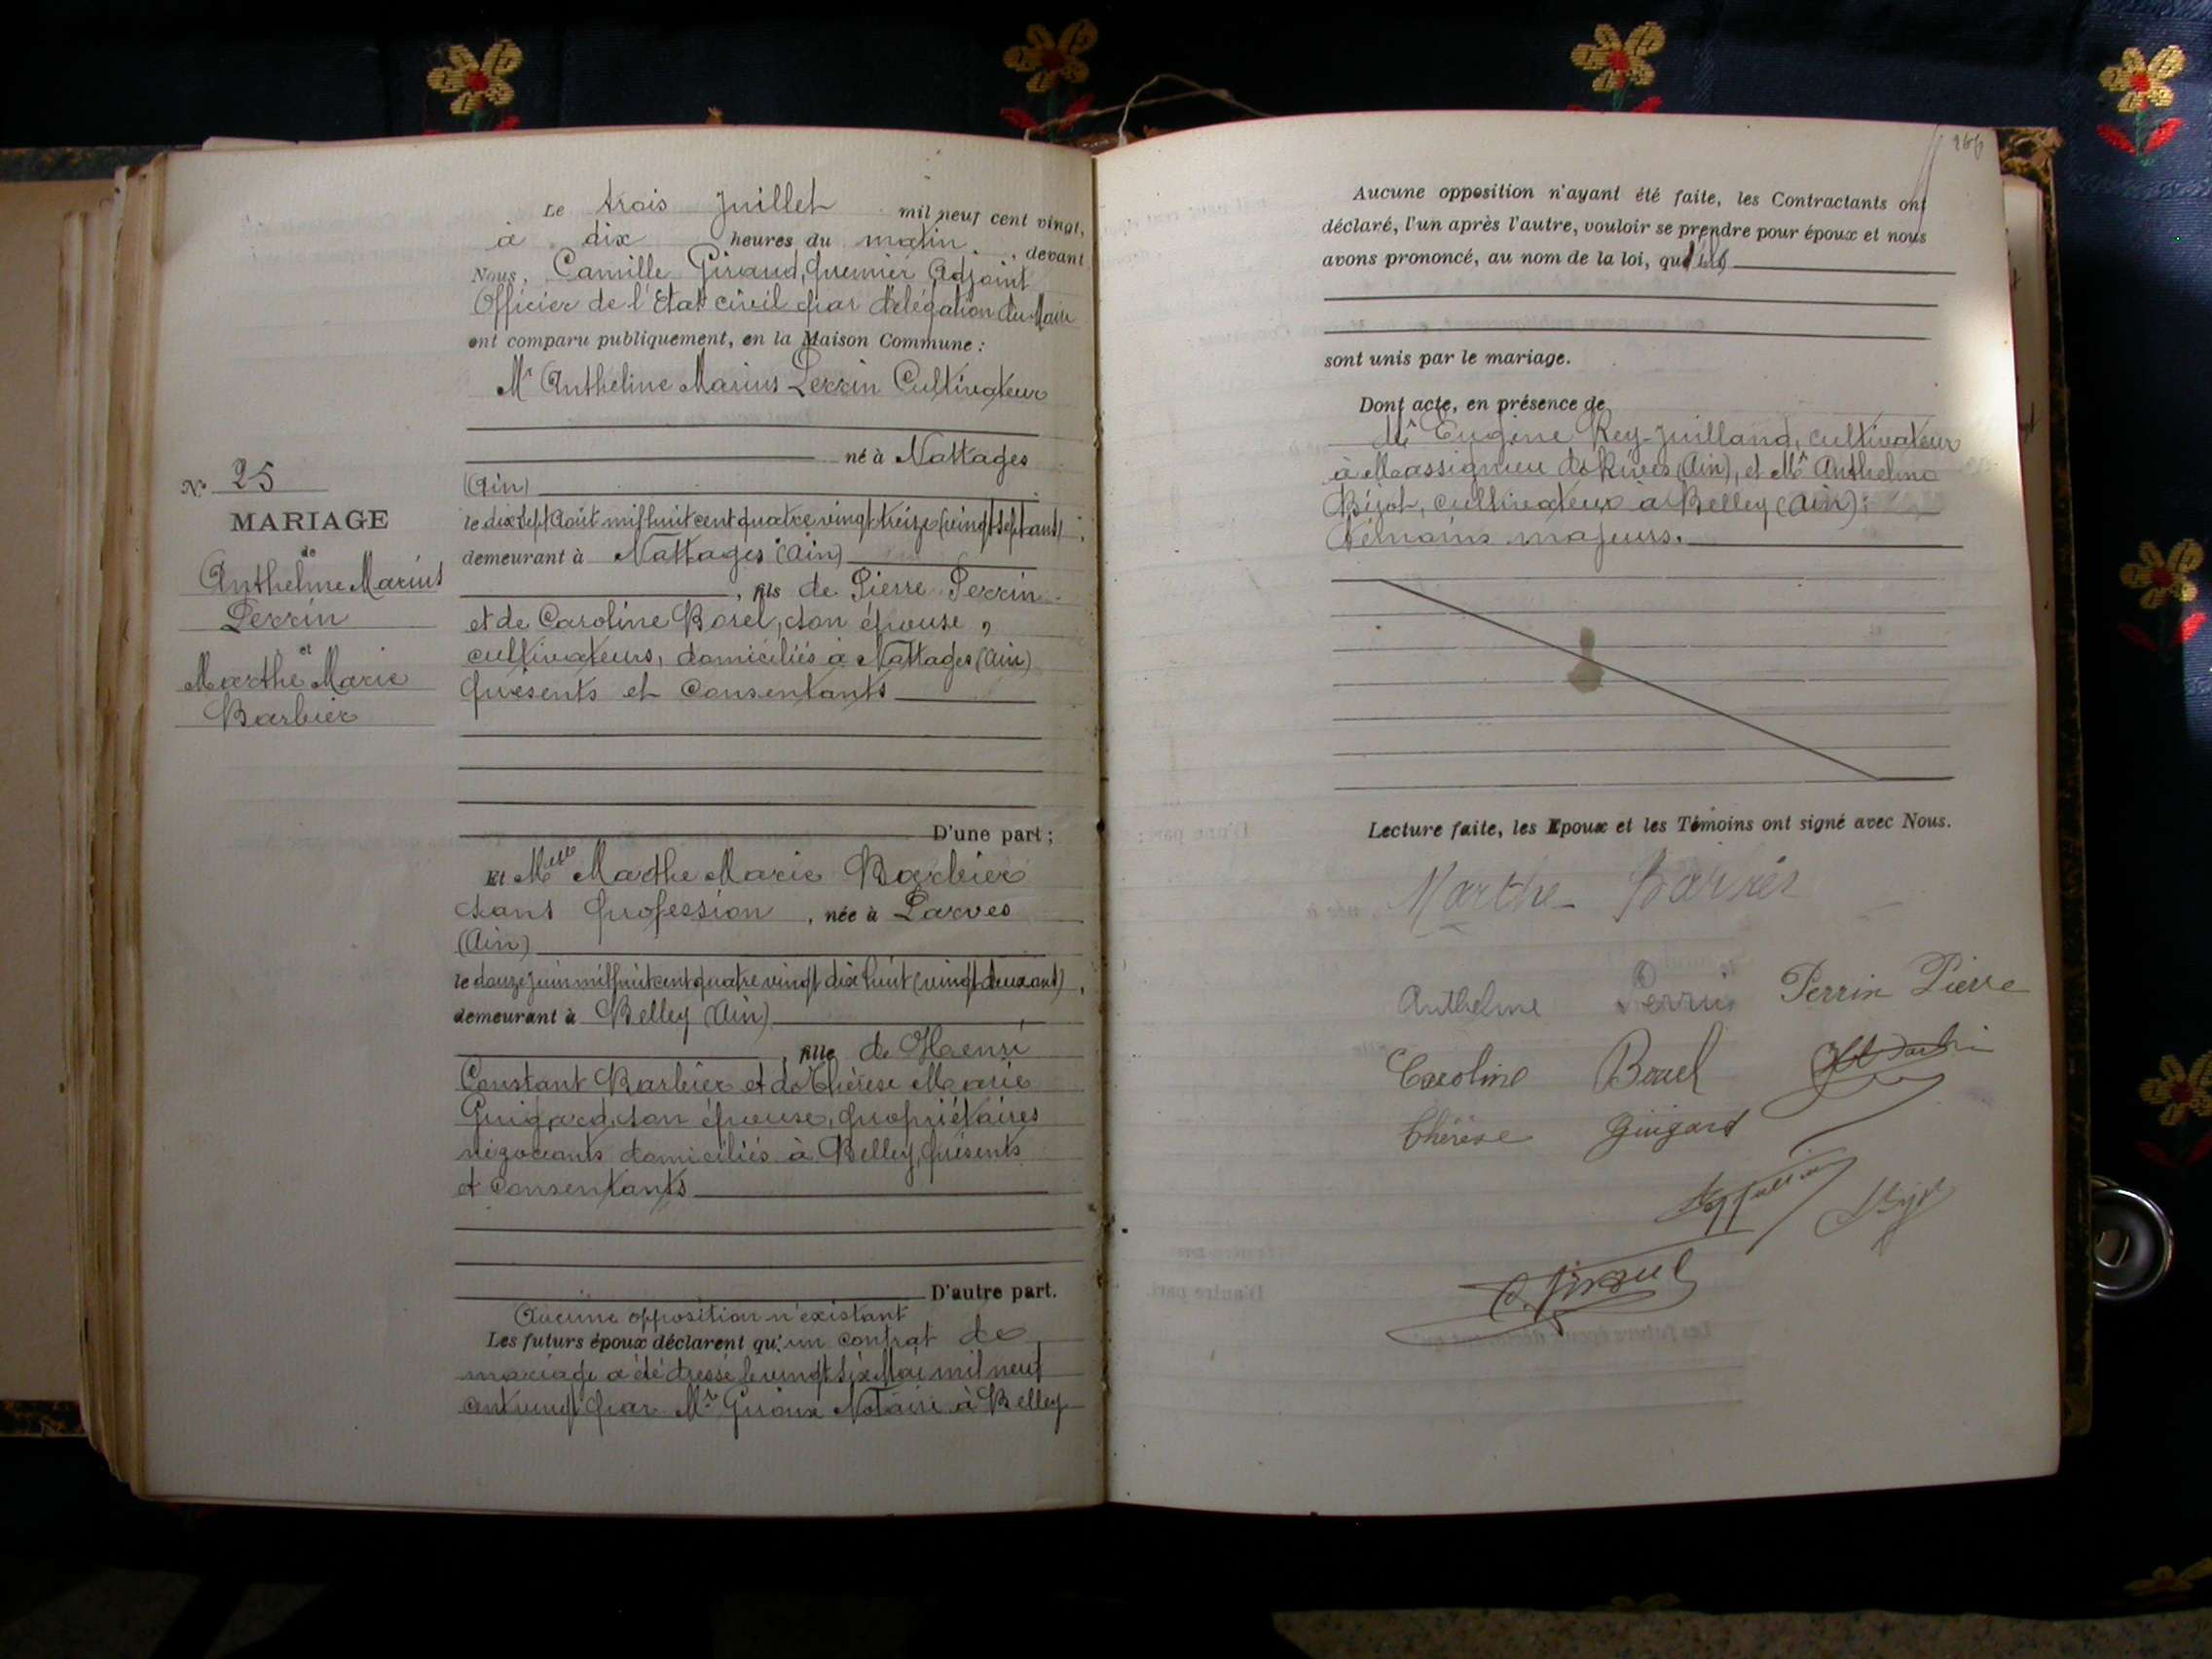 Le trois Juillet mil neuf cent vingt,
à dix heures du matin, devant
Nous, Camille Giraud, premier Adjoint
Officier de l'Etat civil par délégation du Maire
ont comparu publiquement, en la Maison Commune :
Mr Anthelme Marius Perrin Cultivateur
né à Nattages
(Ain)
le dix sept Août mil huit cent quatre vingt treize (vingt sept ans) ;
demeurant à Nattages (Ain)
, fils de Pierre Perrin
et de Caroline Borel, son épouse,
cultivateurs, domiciliés à Nattages (Ain)
présents et Consentants
D'une part ;
Et Melle Marthe Marie Barbier
sans profession, née à Parves
(Ain)
le douze juin mil huit cent quatre vingt dix huit (vingt deux ans),
demeurant à Belley (Ain)
, fille de Henri
Constant Barbier et de Thérèse Marie
Guigard, son épouse, propriétaires
négociants domiciliés à Belley, présents
et Consentants
D'autre part.
Aucune opposition n'existant
Les futurs époux déclarent qu'un contrat de
mariage a été dressé le vingt six Mai mil neuf
cent vingt par Me Giroux Notaire à Belley
No 25
MARIAGE
de
Anthelme Marius
Perrin
et
Marthe Marie
Barbier
266
Aucune opposition n'ayant été faite, les Contractants ont
déclaré, l'un après l'autre, vouloir se prendre pour époux et nous
avons prononcé, au nom de la loi, qu'ils
sont unis par le mariage.
Dont acte, en présence de
Mr Eugène Rey-Juilland, cultivateur
à Massignieu de Rives (Ain), et Mr Anthelme
Bijot, cultivateur à Belley (Ain) :
témoins majeurs.
Lecture faite, les Epoux et les Témoins ont signé avec Nous.
Marthe Barbier
Anthelme Perrin Perrin Pierre
Caroline Borel
Thérèse Guigard
Bijot
C. Giraud